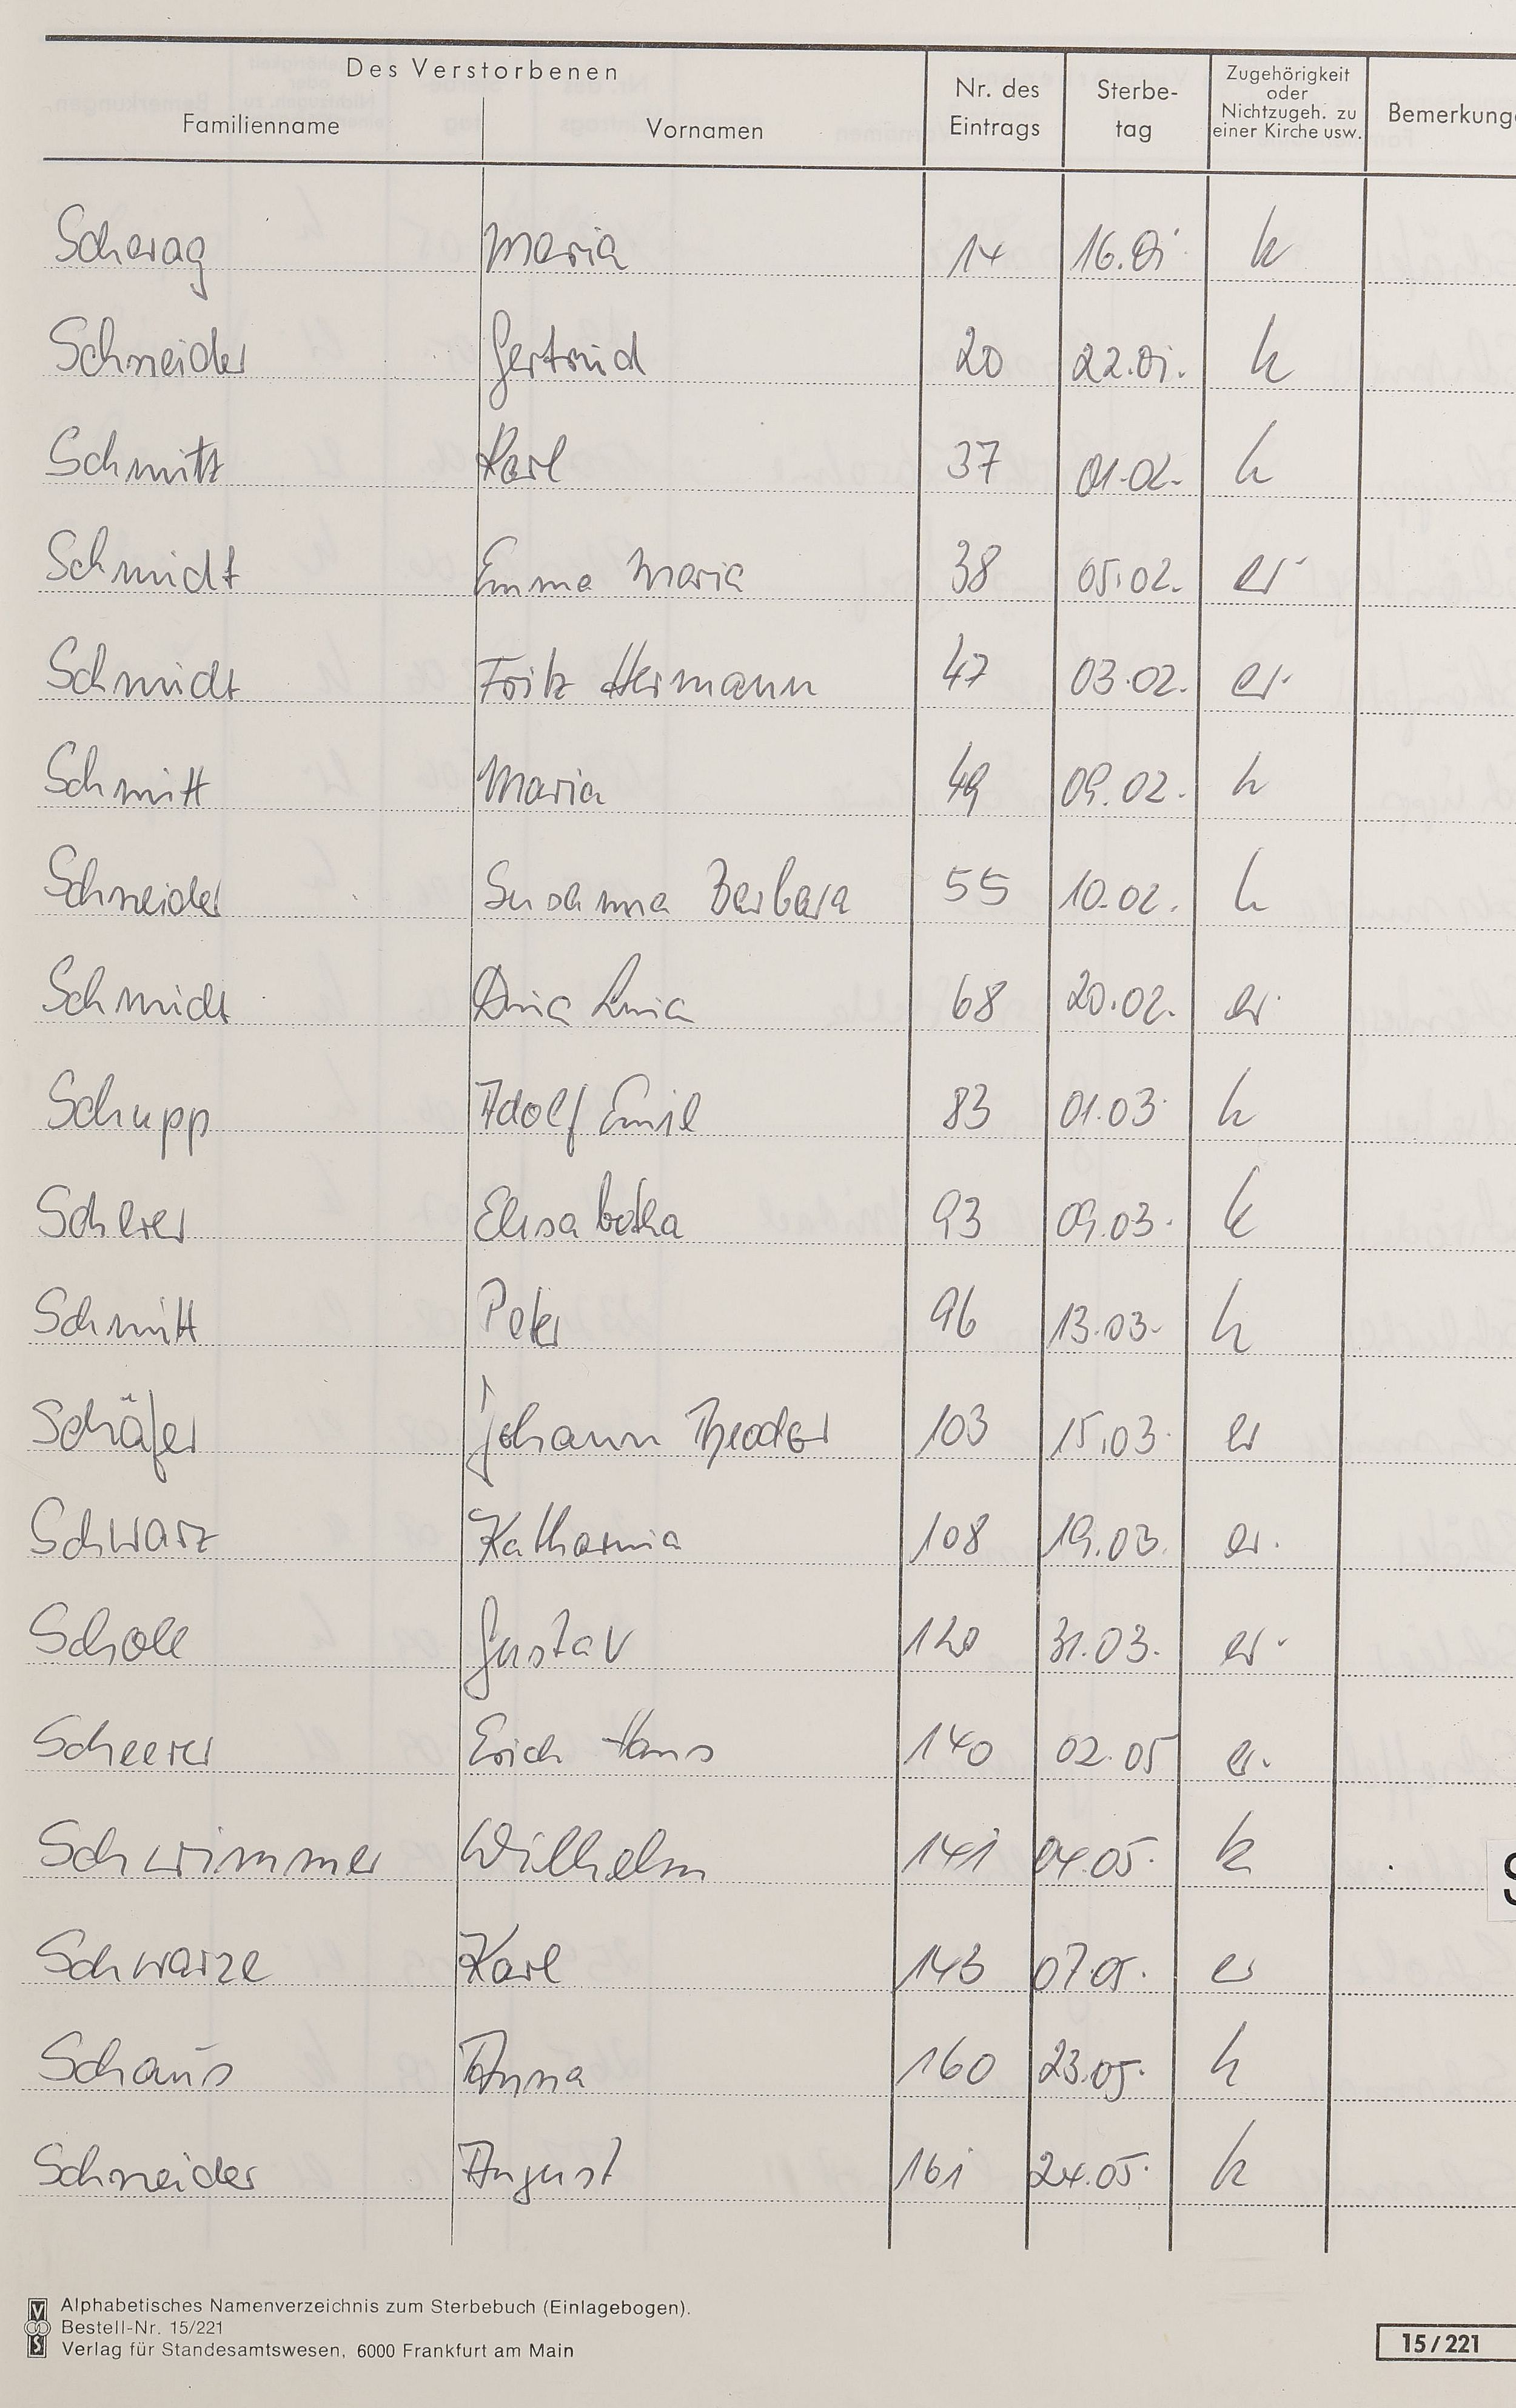 Des Verstorbenen
Familienname Vornamen Nr. des Eintrags Sterbe- tag Zugehörigkeit oder Nichtzugeh. zu einer Kirche usw. Bemerkung
Scherag Maria 14 16.01. k
Schneider Gertrud 20 22.01. k
Schmitz Karl 37 01.02. k
Schmidt Emma Maria 38 05.02. ev.
Schmidt Fritz Hermann 47 03.02. ev.
Schmitt Maria 49 09.02. k
Schneider Susanna Barbara 55 10.02. k
Schmidt Luia 68 20.02. ev.
Schupp Adolf Emil 83 01.03. k
Scherer Elisabetha 93 09.03. k
Schmitt Peter 96 13.03. k
Schäfer Johann Theodor 103 15.03. ev
Schwarz Katharina 108 19.03. ev.
Scholl Gustav 120 31.03. ev.
Scheerer Erich Hans 140 02.05 ev.
Schwimmer Wilhelm 141 04.05. k
Schwarze Karl 143 07.05. ev
Schaus Anna 160 23.05. k
Schneider August 161 24.05. k
Alphabetisches Namenverzeichnis zum Sterbebuch (Einlagebogen).
Bestell-Nr. 15/221
Verlag für Standesamtswesen, 6000 Frankfurt am Main
15/221